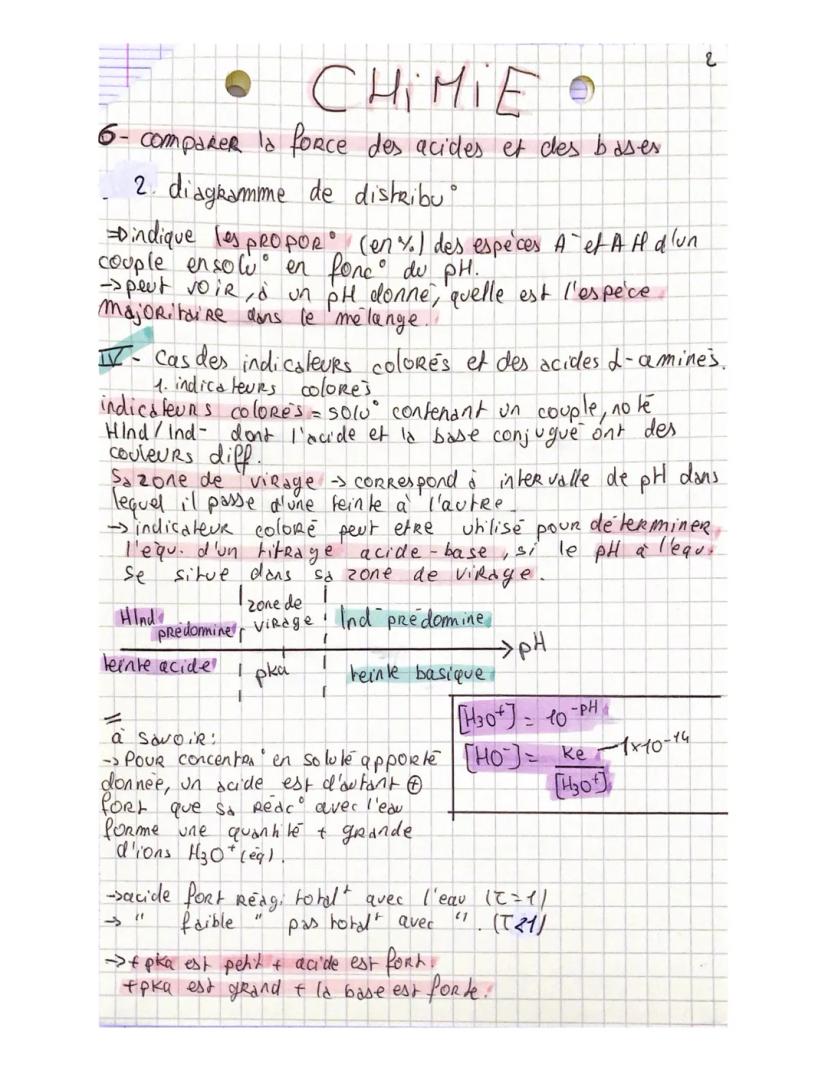 2
CHiMiE
6- comparer la force des acides et des bases
2. diagramme de distribu°
=> indique les propor° (en %) des espèces A⁻ et AH d'un
couple en solu° en fonc° du pH.
-> peut voir, à un pH donné, quelle est l'espèce
majoritaire dans le mélange.
IV - Cas des indicateurs colorés et des acides α-aminés.
1. indicateurs colorés
indicateurs colorés = solu° contenant un couple, noté
HInd/Ind- dont l'acide et la base conjugué ont des
couleurs diff.
Sa zone de virage -> correspond à intervalle de pH dans
lequel il passe d'une teinte à l'autre.
-> indicateur coloré peut etre utilisé pour déterminer
l'équ. d'un titrage acide-base, si le pH à l'equ.
se situe dans sa zone de virage.
HInd prédomine zone de virage Ind⁻ prédomine
pH
teinte acide pka teinte basique
[H3O⁺] = 10^-pH
[HO⁻] = Ke / [H3O⁺] 1x10^-14
à savoir:
-> Pour concentra° en soluté apporté
donnée, un acide est d'autant ⊕
fort que sa réac° avec l'eau
forme une quantité + grande
d'ions H3O⁺ (éq).
-> acide fort réagi total^t avec l'eau (τ=1)
-> " faible " pas total^t avec ". (τ<1)
-> + pka est petit + acide est fort.
+ pka est grand + la base est forte.